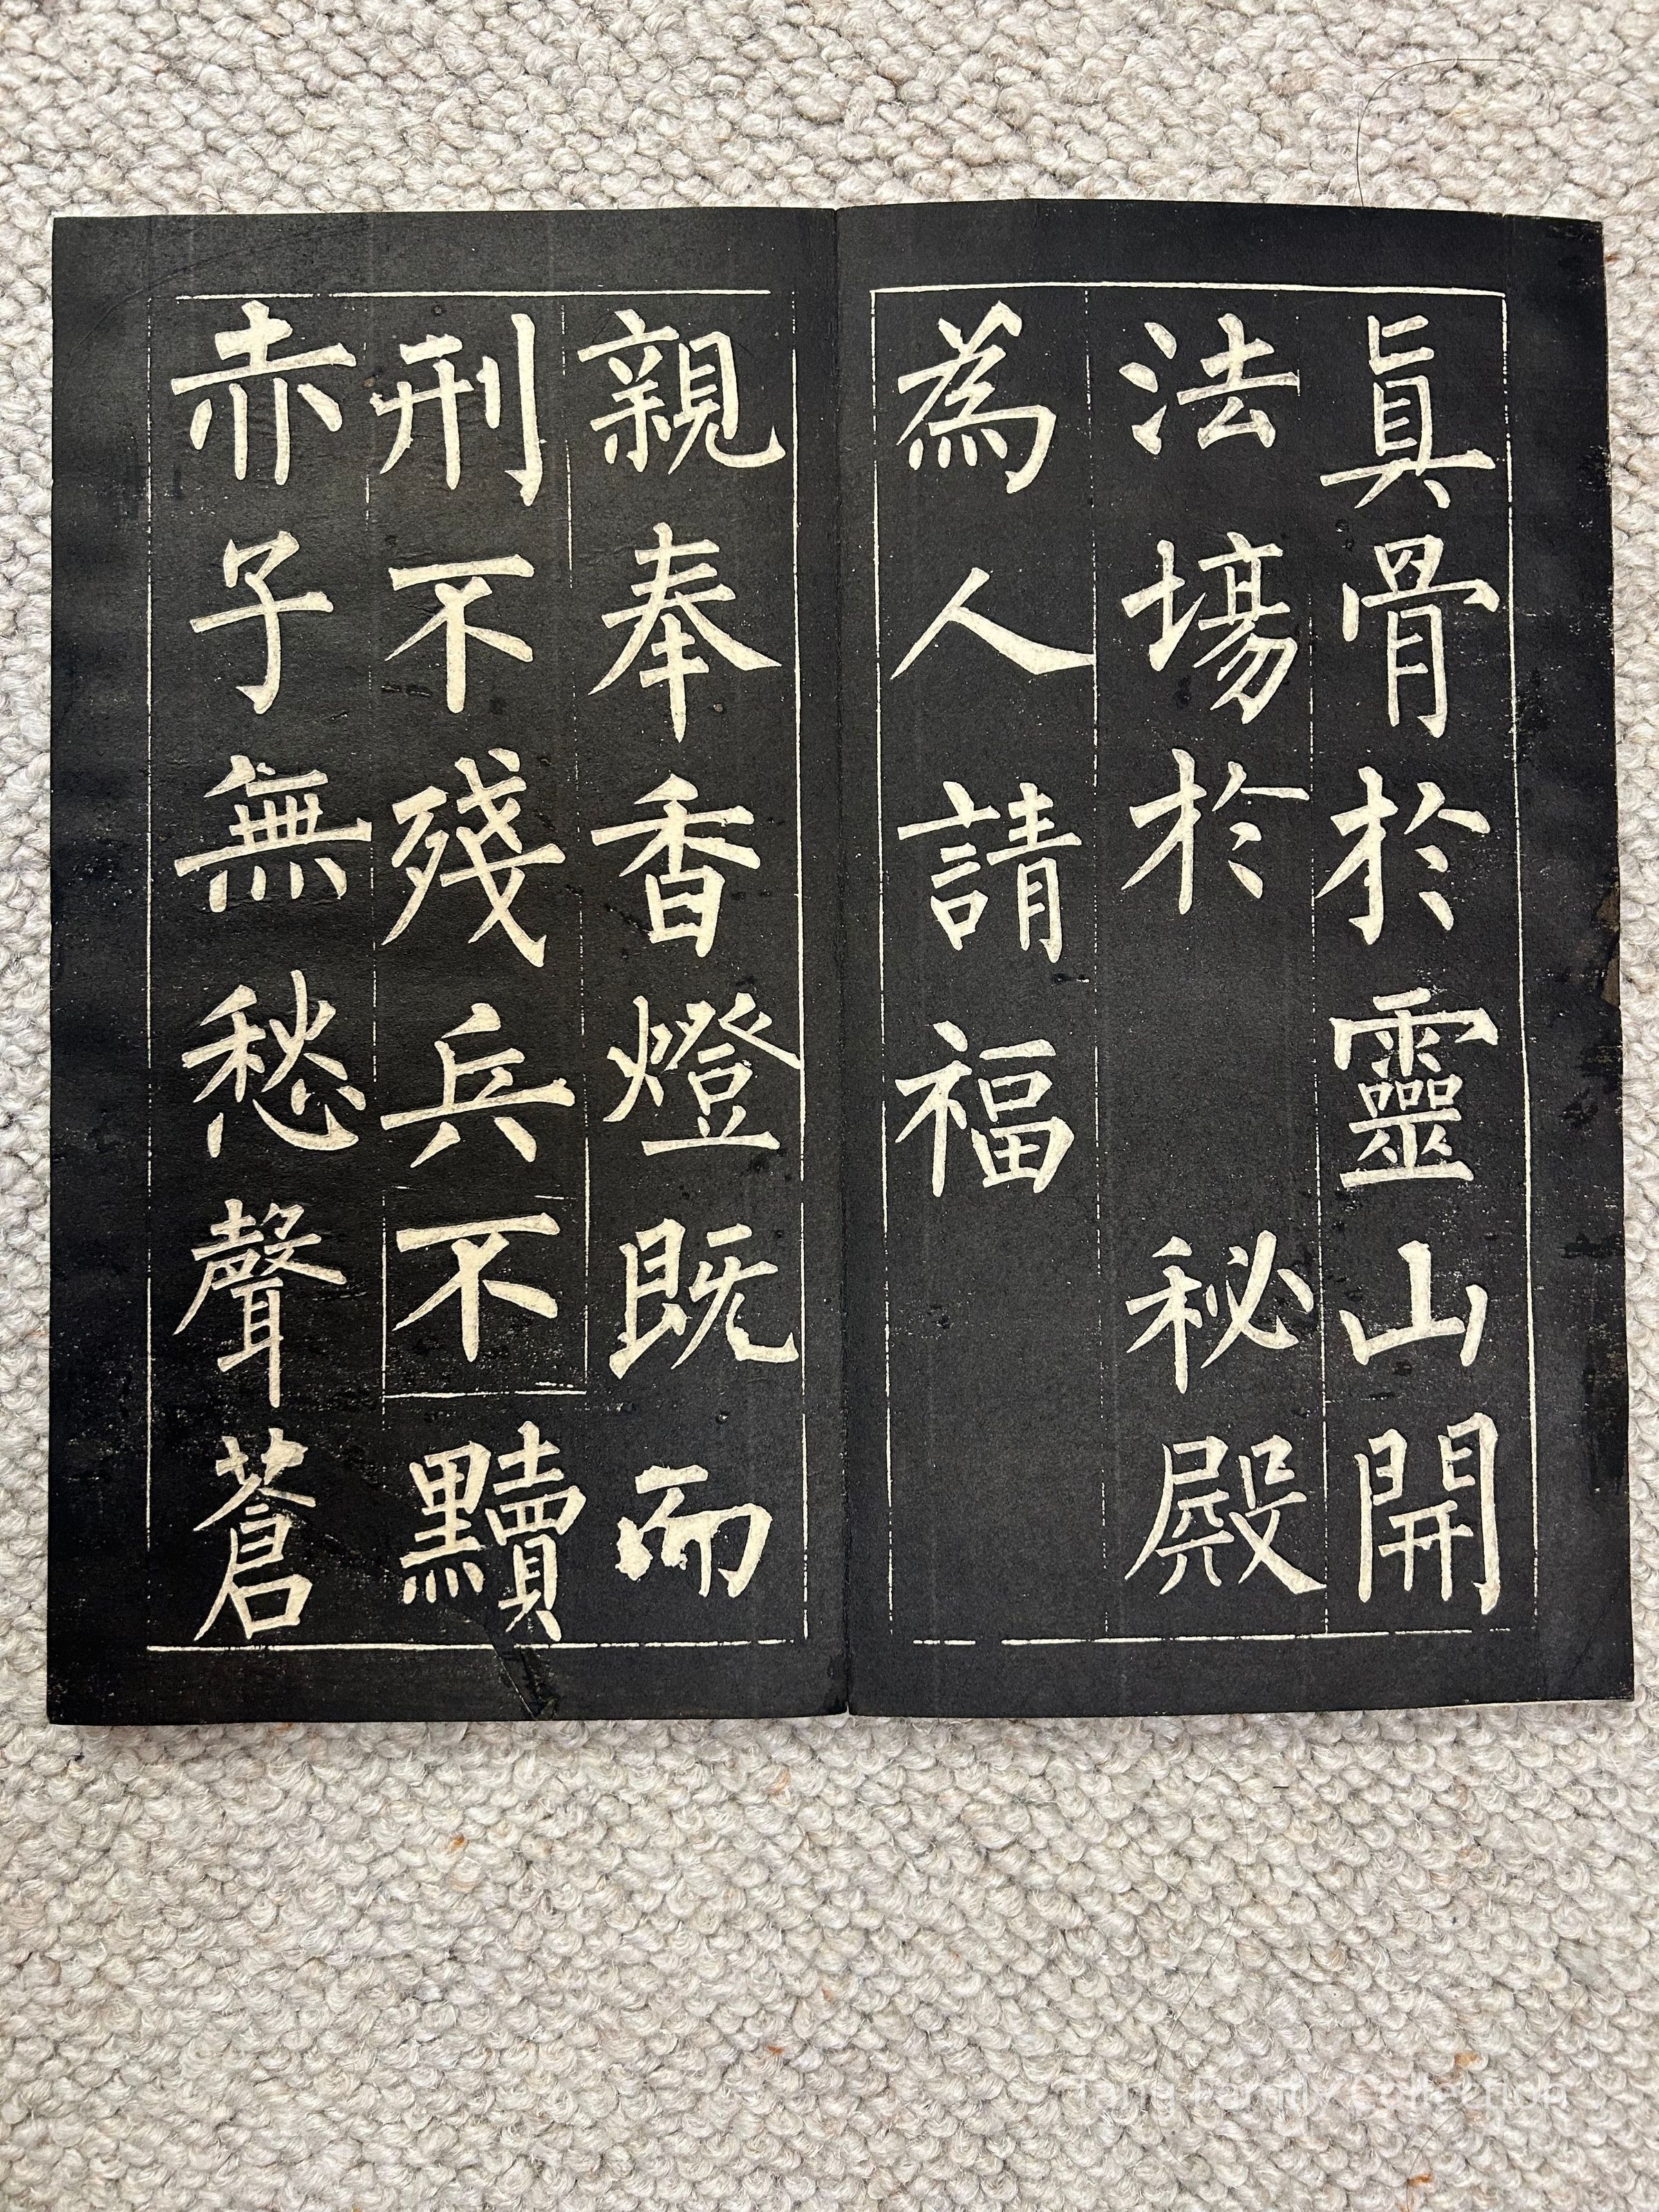 眞骨於靈山開
法場於　秘殿
為人請福
親奉香燈既而
刑不殘兵不黷
赤子無愁聲蒼
Tang Family Collection